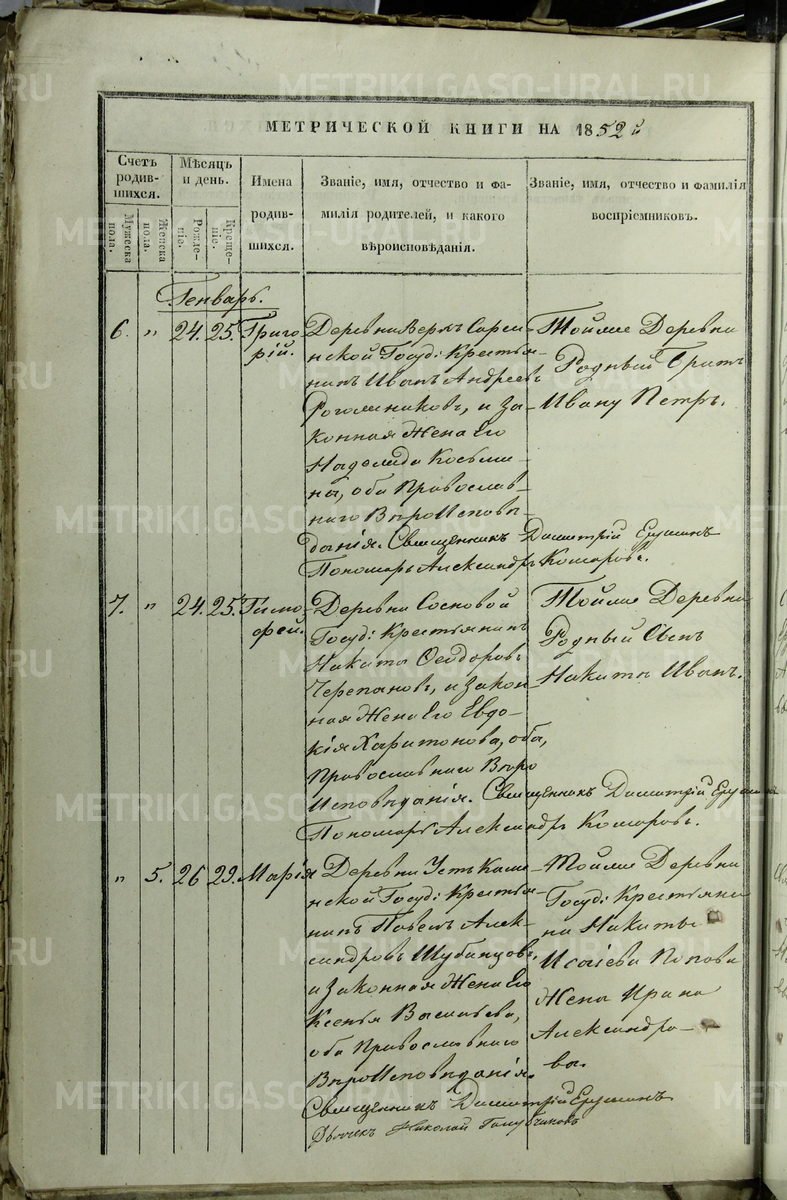 METRIKI.GASO-URAL.RU
МЕТРИЧЕСКОЙ КНИГИ НА 1852 й
Счетъ родив-шихся.
Мужеска пола.
Женска пола.
Мѣсяцъ и день.
Рожде-ніе.
Креще-ніе.
Имена родив-шихся.
Званіе, имя, отчество и фа-
милія родителей, и какого
вѣроисповѣданія.
Званіе, имя, отчество и фамилія
воспріемниковъ.
Генварь.
6. " 24. 25. Григо-
рій.
Деревни Верхъ
нской Госуд: Крестья-
нинъ Иванъ Андреевъ
и За-
конная Жена Его
Козьми-
на, оба Православ-
наго Вѣроисповѣ-
данія. Священникъ Димитрій
Пономарь Александръ Комаровъ.
Тойже Деревни
Родный Братъ
Ивану Петръ.
7. " 24. 25. Тимо-
фей.
Деревни Сосновой
Госуд: Крестьянинъ
Никита Феодоровъ
Черепановъ, и Закон-
ная Жена Его Евдо-
кія Харитонова, оба,
Православнаго Вѣро
Исповѣданія. Священникъ Димитрій
Пономарь Александръ Комаровъ.
Тойже Деревни
Родный Сынъ
Никиты Иванъ.
" 5. 26 29. Марія
Деревни Усть Каме-
нской Госуд: Крестья-
нинъ Павелъ Алек-
сандровъ
и Законная Жена Его
Ксенья Васильева,
оба Православнаго
Вѣроисповѣданія.
Священникъ Димитрій
Дьячекъ Николай
Тойже Деревни
Госуд: Крестьяни-
на Никиты
Исаіева Попова
Жена Ирина
Александро-
ва.